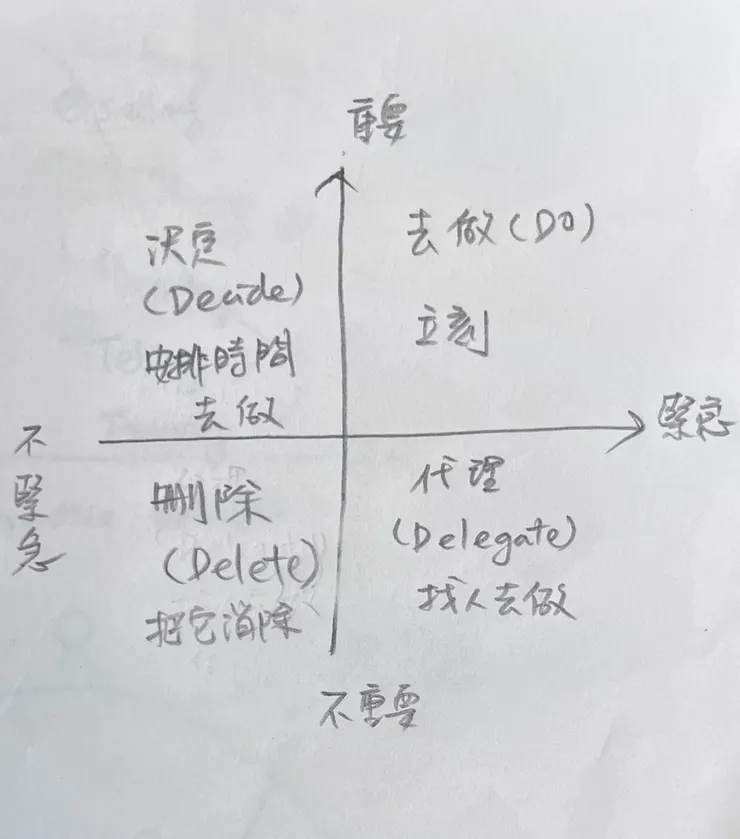 重要
決定
(Decide)
安排時間
去做
去做(DO)
立刻
緊急
不緊急
刪除
(Delete)
把它消除
代理
(Delegate)
找人去做
不重要